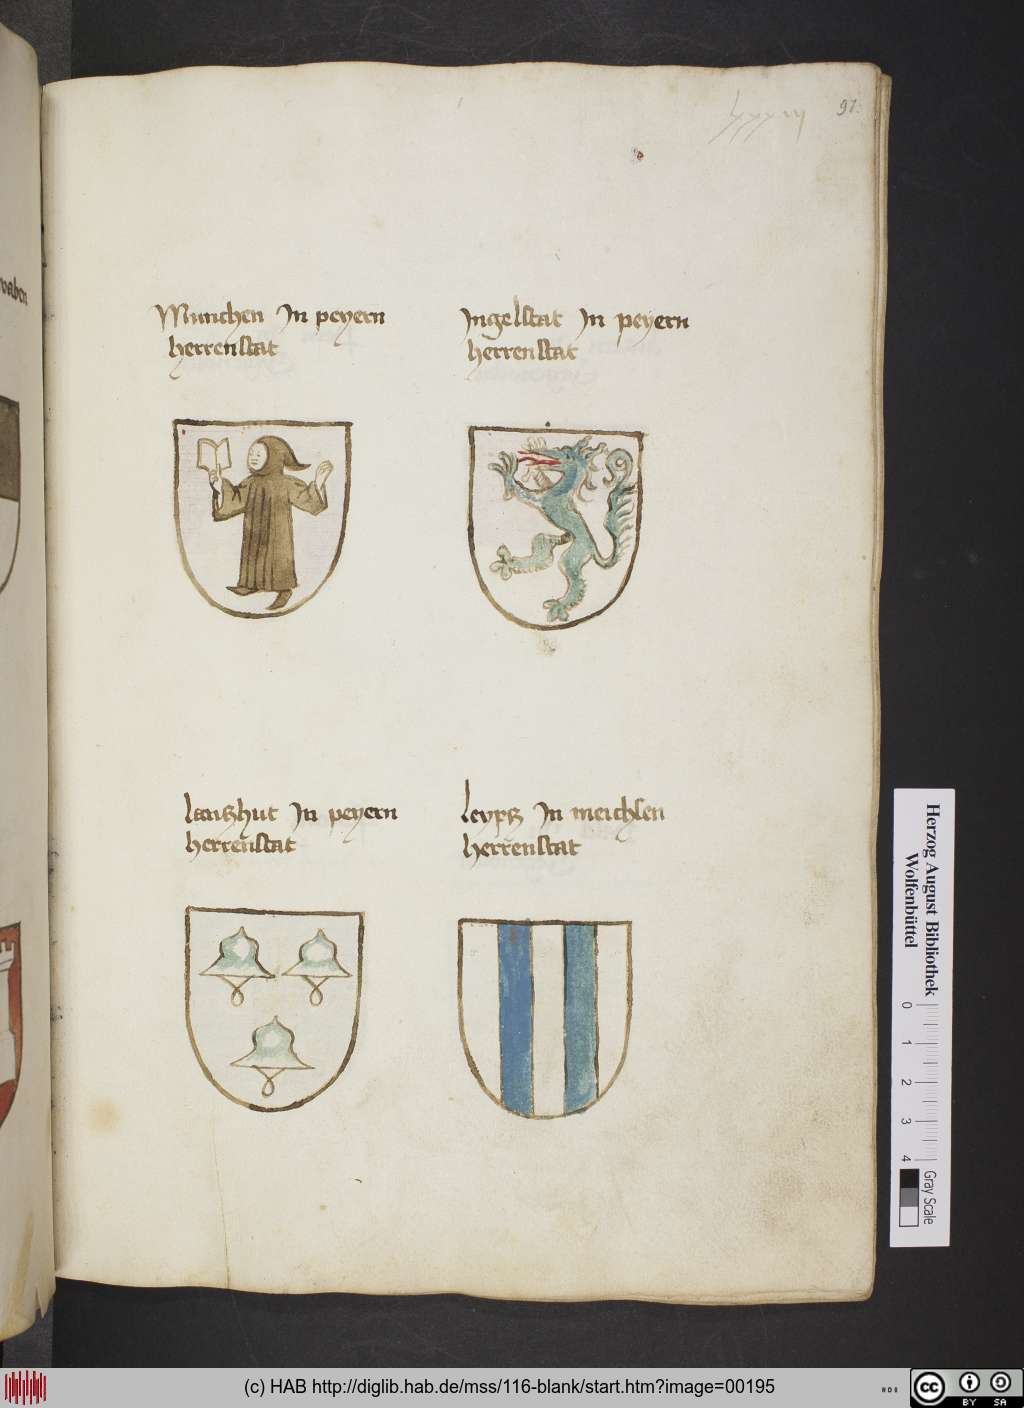 91.
Munchen In peyern
herrenstat
Ingelstat In peyern
herrenstat
lantzhut In peyern
herrenstat
leyptz In meichsen
herrenstat
Herzog August Bibliothek
Wolfenbüttel
0 1 2 3 4
Gray Scale
(c) HAB http://diglib.hab.de/mss/116-blank/start.htm?image=00195
cc BY SA